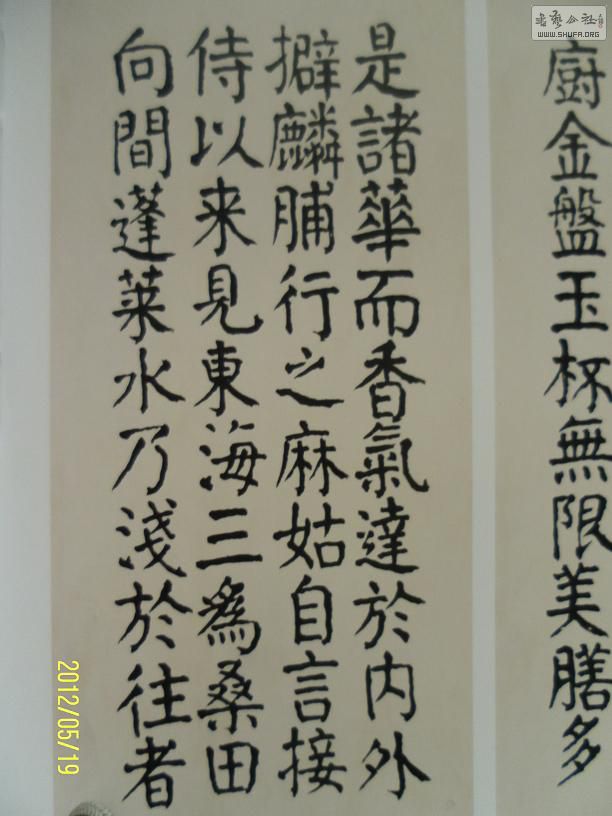 廚金盤玉杯無限美膳多
是諸華而香氣達於內外
擗麟脯行之麻姑自言接
侍以来見東海三為桑田
向間蓬莱水乃淺於往者
2012/05/19
書藝公社
WWW.SHUFA.ORG